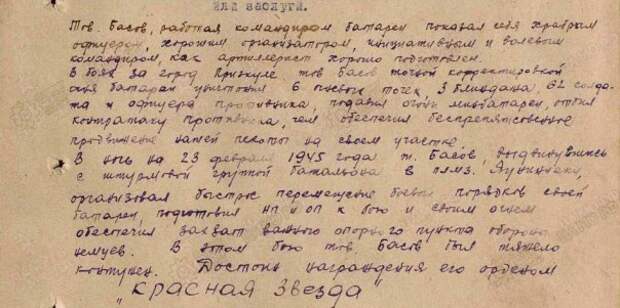 или заслуги.
Тов. Басов, работая командиром батареи показал себя храбрым
офицером, хорошим организатором, инициативным и волевым
командиром, как артиллерист хорошо подготовлен.
В боях за город Приэкуле тов Басов точной корректировкой
огня батареи уничтожил 6 пулевых точек, 3 блиндажа, 62 солда-
та и офицера противника, подавил огонь минбатареи, отбил
контратаку противника, чем обеспечил беспрепятственное
продвижение нашей пехоты на своем участке.
В ночь на 23 февраля 1945 года т. Басов, выдвинувшись
с штурмовой группой батальона в
организовал быстрое перемещение боевых порядков своей
батареи, подготовил НП и ОП к бою и своим огнем
обеспечил захват важного опорного пункта обороны
немцев. В этом бою тов. Басов был тяжело
контужен. Достоин награждения его орденом
"Красная Звезда"